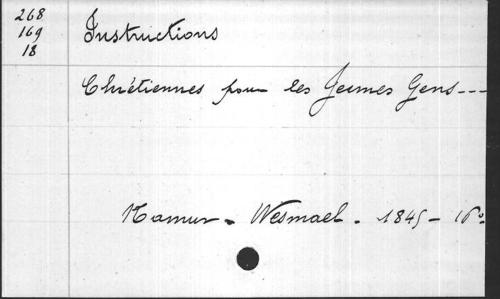 268
169
18
Instructions
Chrétiennes pour les Jeunes Gens ---
Namur - Wesmael - 1845 - 16°